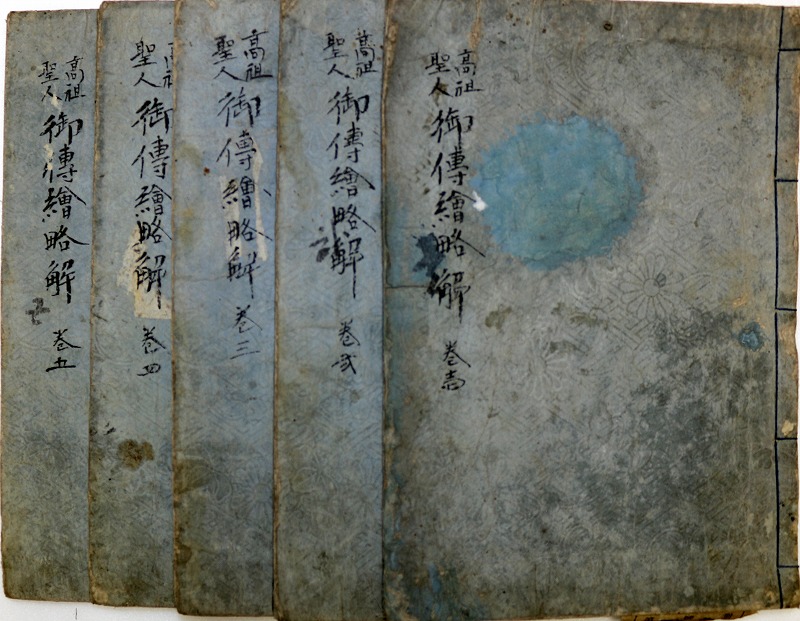 高祖
聖人
御傳繪略解
巻壱
高祖
聖人
御傳繪略解
巻弐
高祖
聖人
御傳繪略解
巻三
高祖
聖人
御傳繪略解
巻四
高祖
聖人
御傳繪略解
巻五